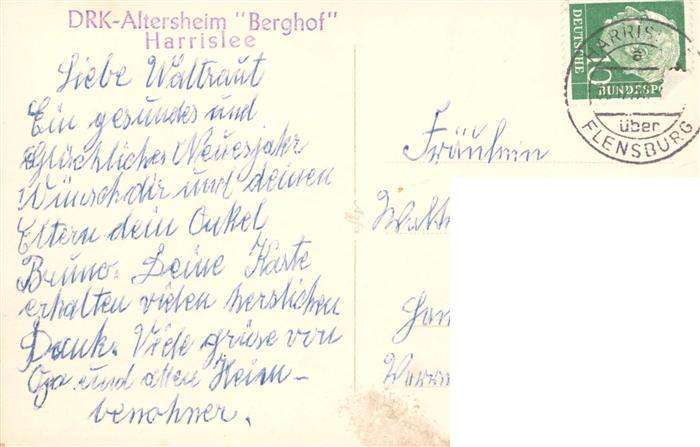 DRK-Altersheim "Berghof"
Harrislee
Liebe Waltraut
Ein gesundes und
Glückliches Neuesjahr
Wünsch dir und deinen
Eltern dein Onkel
Bruno. Deine Karte
erhalten vielen herslichen
Dank. Viele grüse von
Opa und allen Heim-
bewohner.
DEUTSCHE
10
BUNDESPO
HARRIS
a
über
FLENSBURG
Fräulein
Walt
Ham